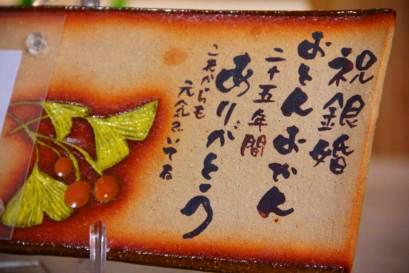 祝銀婚
おとんおかん
二十五年間
ありがとう
これからも
元気でいてね